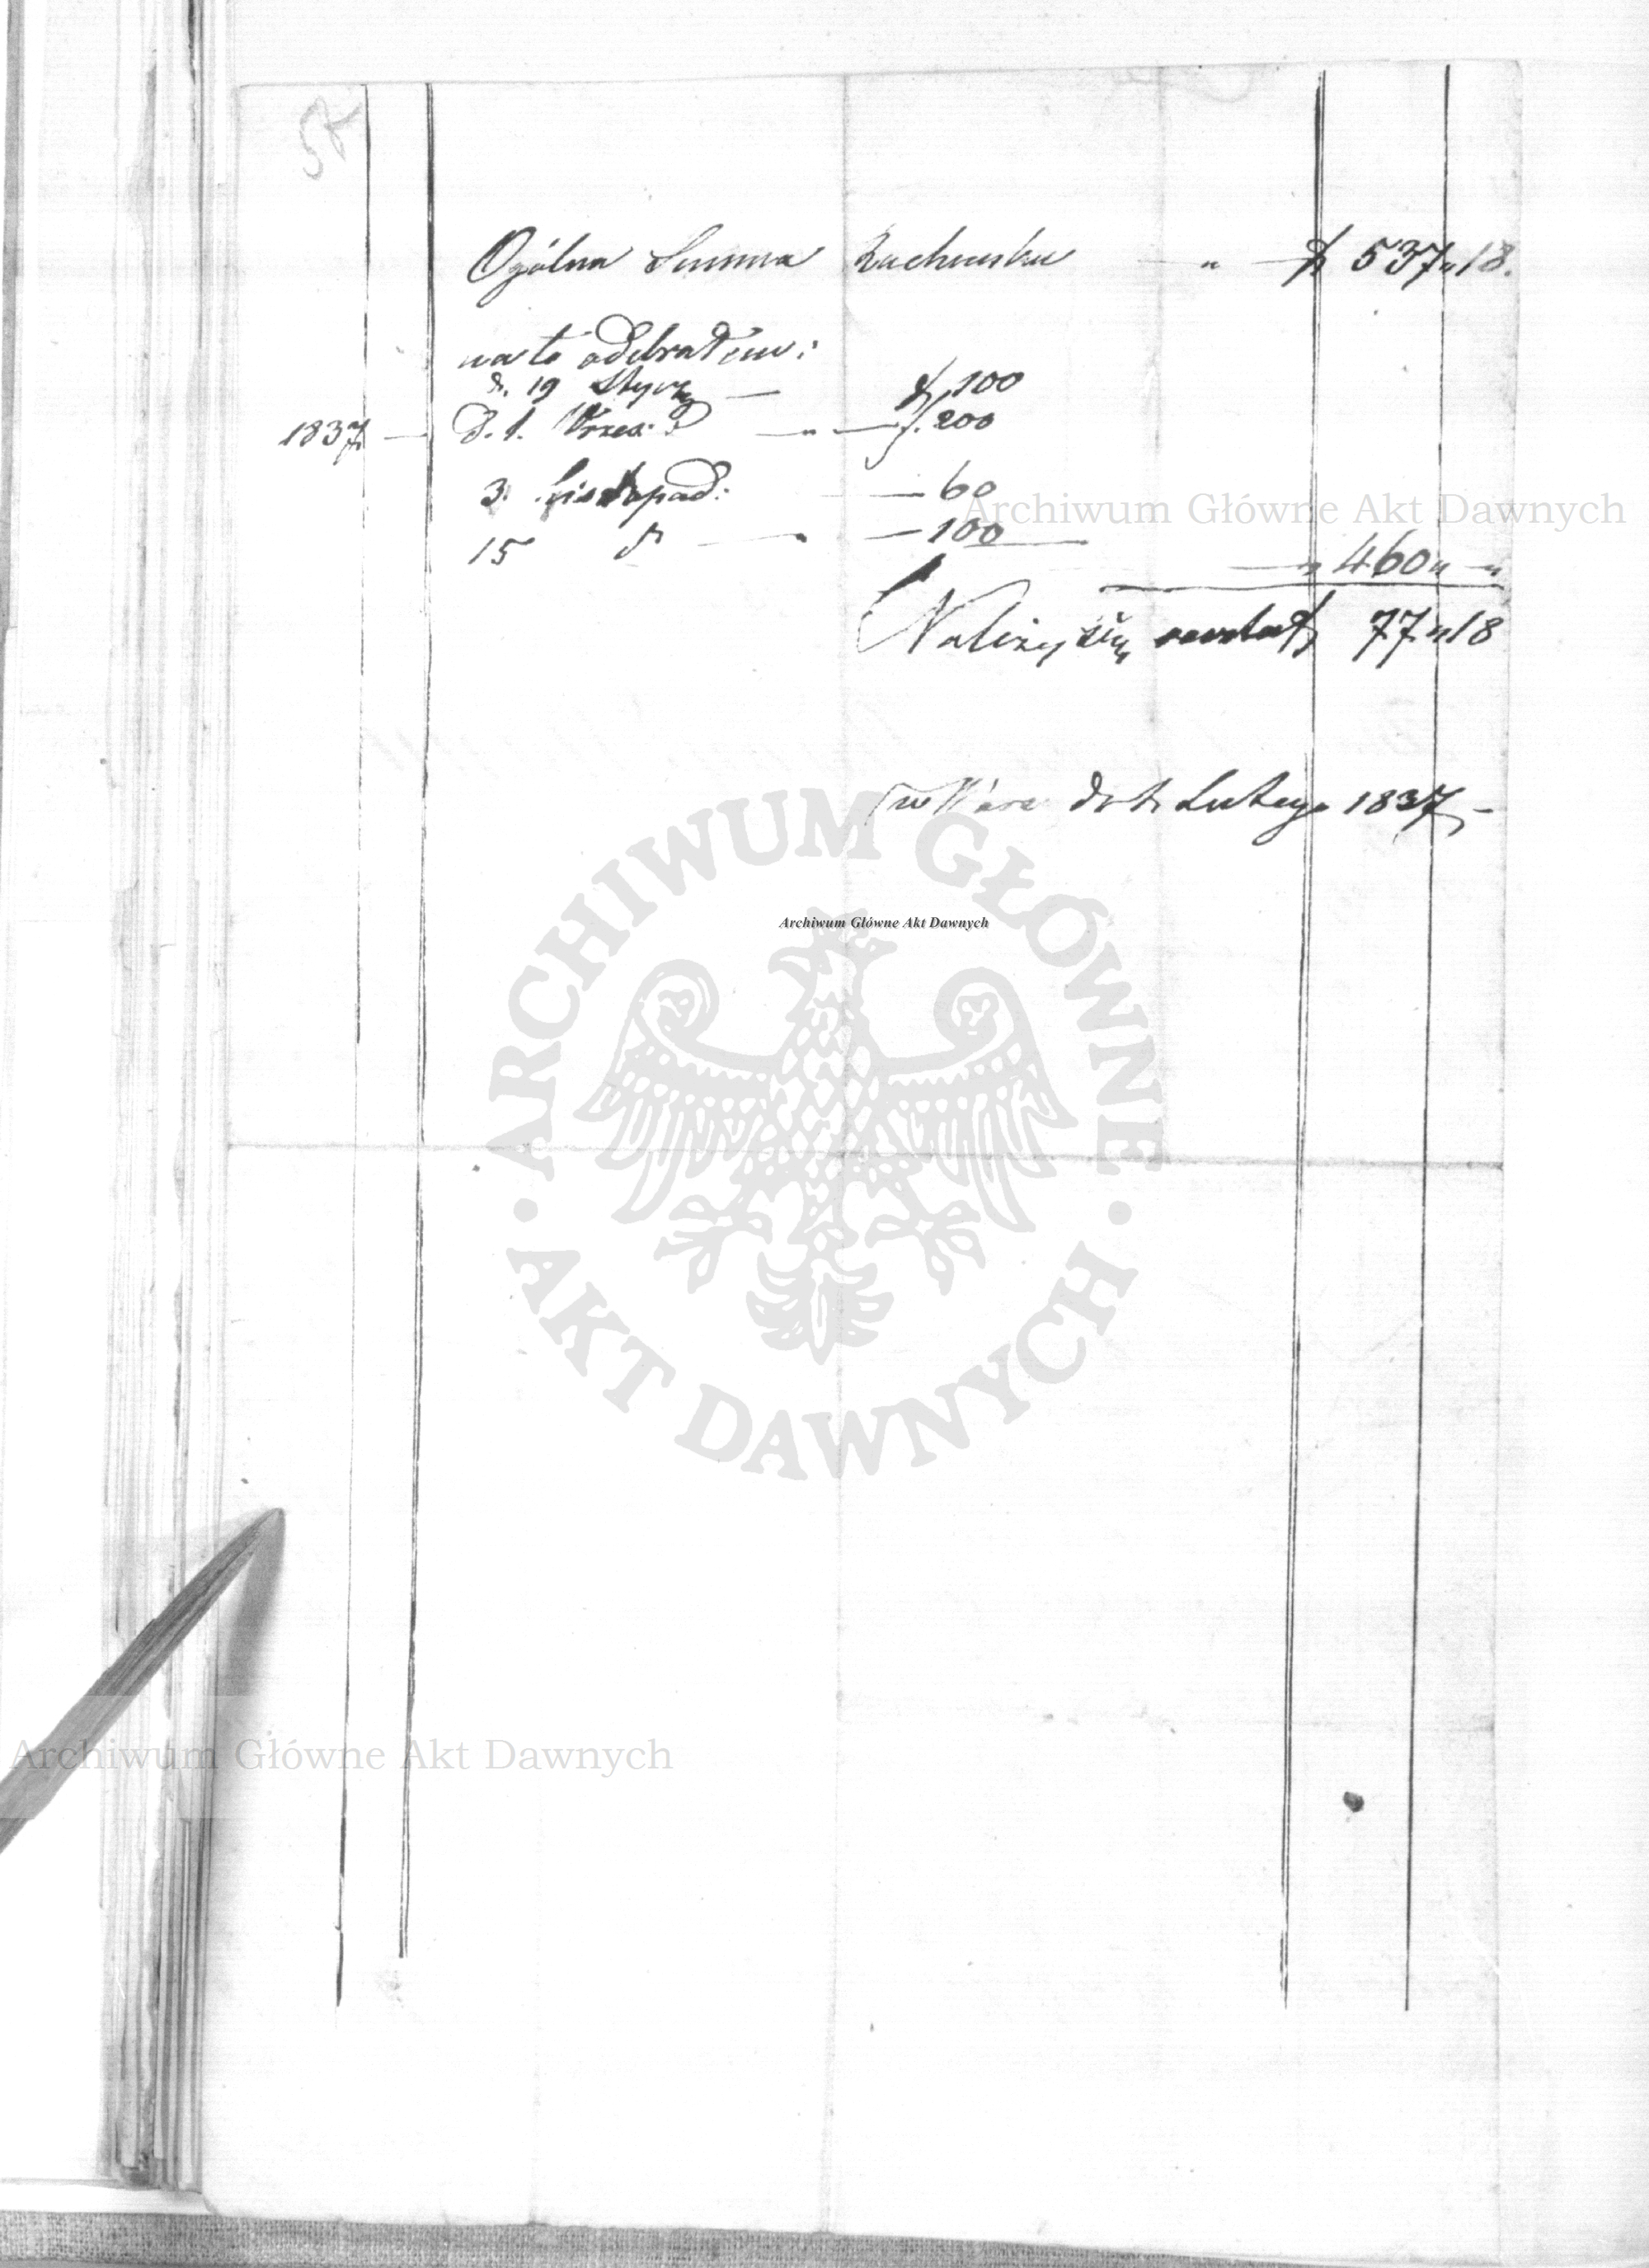 57
Ogólna Summa Rachunku — " — f 537 „ 18.
na to odebrałem:
d. 19 Stycz — f 100
1837 — d. 1. Wrześ: — " — f. 200
3. Listopad: — 60
15 — " — 100
— " 460 „ — "
Należy się f 77 „ 18
w Wars d Lutego 1837 —
Archiwum Główne Akt Dawnych
Archiwum Główne Akt Dawnych
ARCHIWUM GŁÓWNE · AKT DAWNYCH ·
Archiwum Główne Akt Dawnych